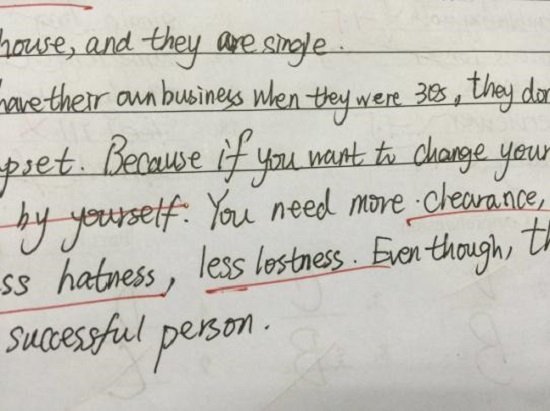 house, and they are single.
have their own business when they were 30s, they don
upset. Because if you want to change your
by yourself. You need more clearance,
ss hatness, less lostness. Even though, th
successful person.